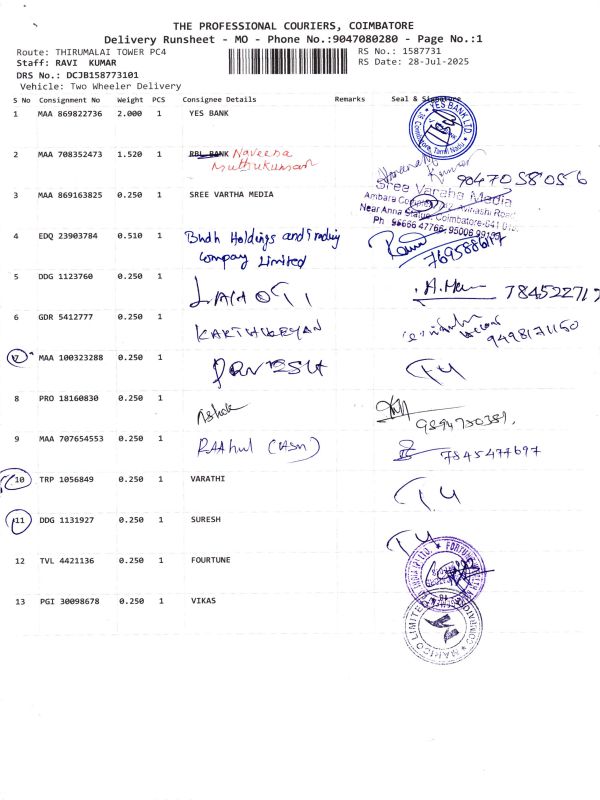 THE PROFESSIONAL COURIERS, COIMBATORE
Delivery Runsheet - MO - Phone No.:9047080280 - Page No.:1
Route: THIRUMALAI TOWER PC4
RS No.: 1587731
Staff: RAVI KUMAR
RS Date: 28-Jul-2025
DRS No.: DCJB158773101
Vehicle: Two Wheeler Delivery
S No Consignment No Weight PCS Consignee Details Remarks Seal & Signature
1 MAA 869822736 2.000 1 YES BANK
YES BANK LTD.
2 MAA 708352473 1.520 1 RBL BANK Naveena
Muthukumar
9047058056
3 MAA 869163825 0.250 1 SREE VARTHA MEDIA
Sree Varaha Media
Near Anna Statue, Coimbatore-641
4 EDQ 23903784 0.510 1 Bndh Holdings and Trading
Company Limited
7695886117
5 DDG 1123760 0.250 1 LAHOTI
6 GDR 5412777 0.250 1 KARTHIKEYAN
9498171150
7 MAA 100323288 0.250 1
8 PRO 18160830 0.250 1 Ashok
9 MAA 707654553 0.250 1 RAAhul
7845477697
10 TRP 1056849 0.250 1 VARATHI
11 DDG 1131927 0.250 1 SURESH
12 TVL 4421136 0.250 1 FOURTUNE
13 PGI 30098678 0.250 1 VIKAS
MARICO LIMITED